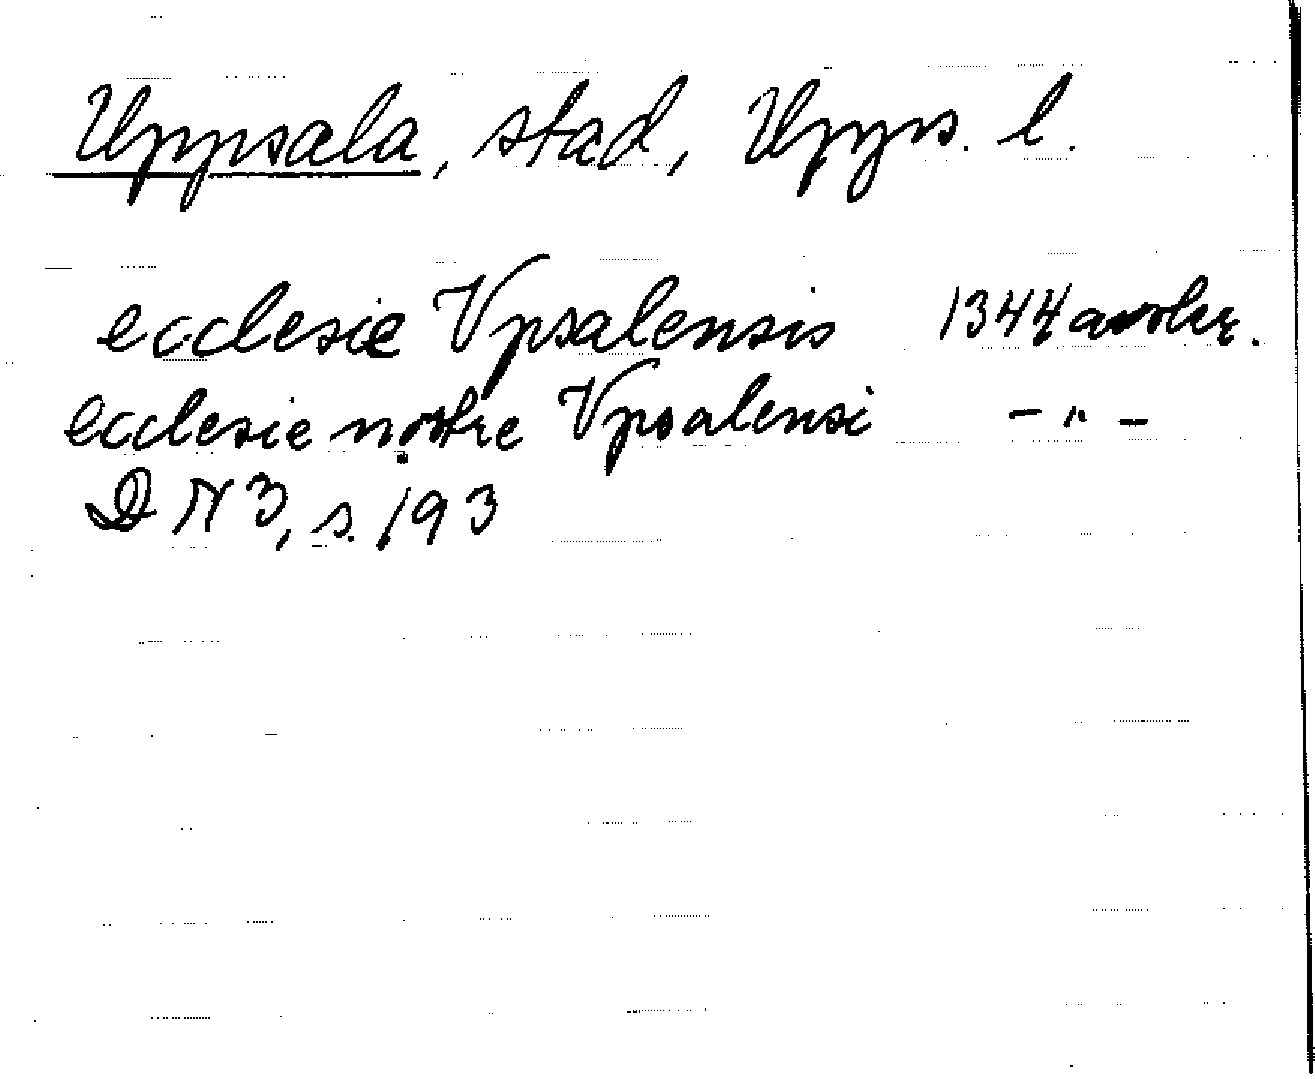 Uppsala, stad, Upps. l.
ecclesie Vpsalensis 1344 avskr.
ecclesie nostre Vpsalensi – " –
DN 3, s. 193